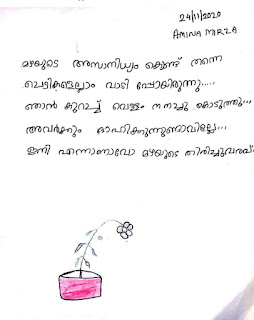 24/11/2020
AMINA MIRZA
മഴയുടെ അസാന്നിധ്യം കൊണ്ട് തന്നെ
ചെടികളെല്ലാം വാടി പ്പോയിരുന്നു.....
ഞാൻ കുറച്ച് വെള്ളം നനച്ചു കൊടുത്തു...
അവർക്കും ദാഹിക്കുന്നുണ്ടാവില്ലേ...
ഇനി എന്നാണാവോ മഴയുടെ തിരിച്ചുവരവ്.